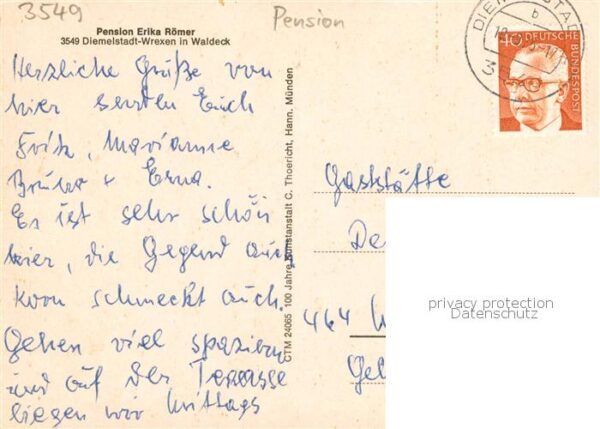 3549
Pension
Pension Erika Römer
3549 Diemelstadt-Wrexen in Waldeck
Herzliche Grüße von
hier senden Euch
Fritz, Marianne
+ Erna.
Es ist sehr schön
hier, die Gegend auch
schmeckt auch.
Gehen viel spazieren
und auf der Terasse
liegen wir Mittags
CTM 24065 100 Jahre Kunstanstalt C. Thoericht, Hann. Münden
DIEMELSTADT
b
3
40 DEUTSCHE BUNDESPOST
Gaststätte
De
464
Gel
privacy protection
Datenschutz